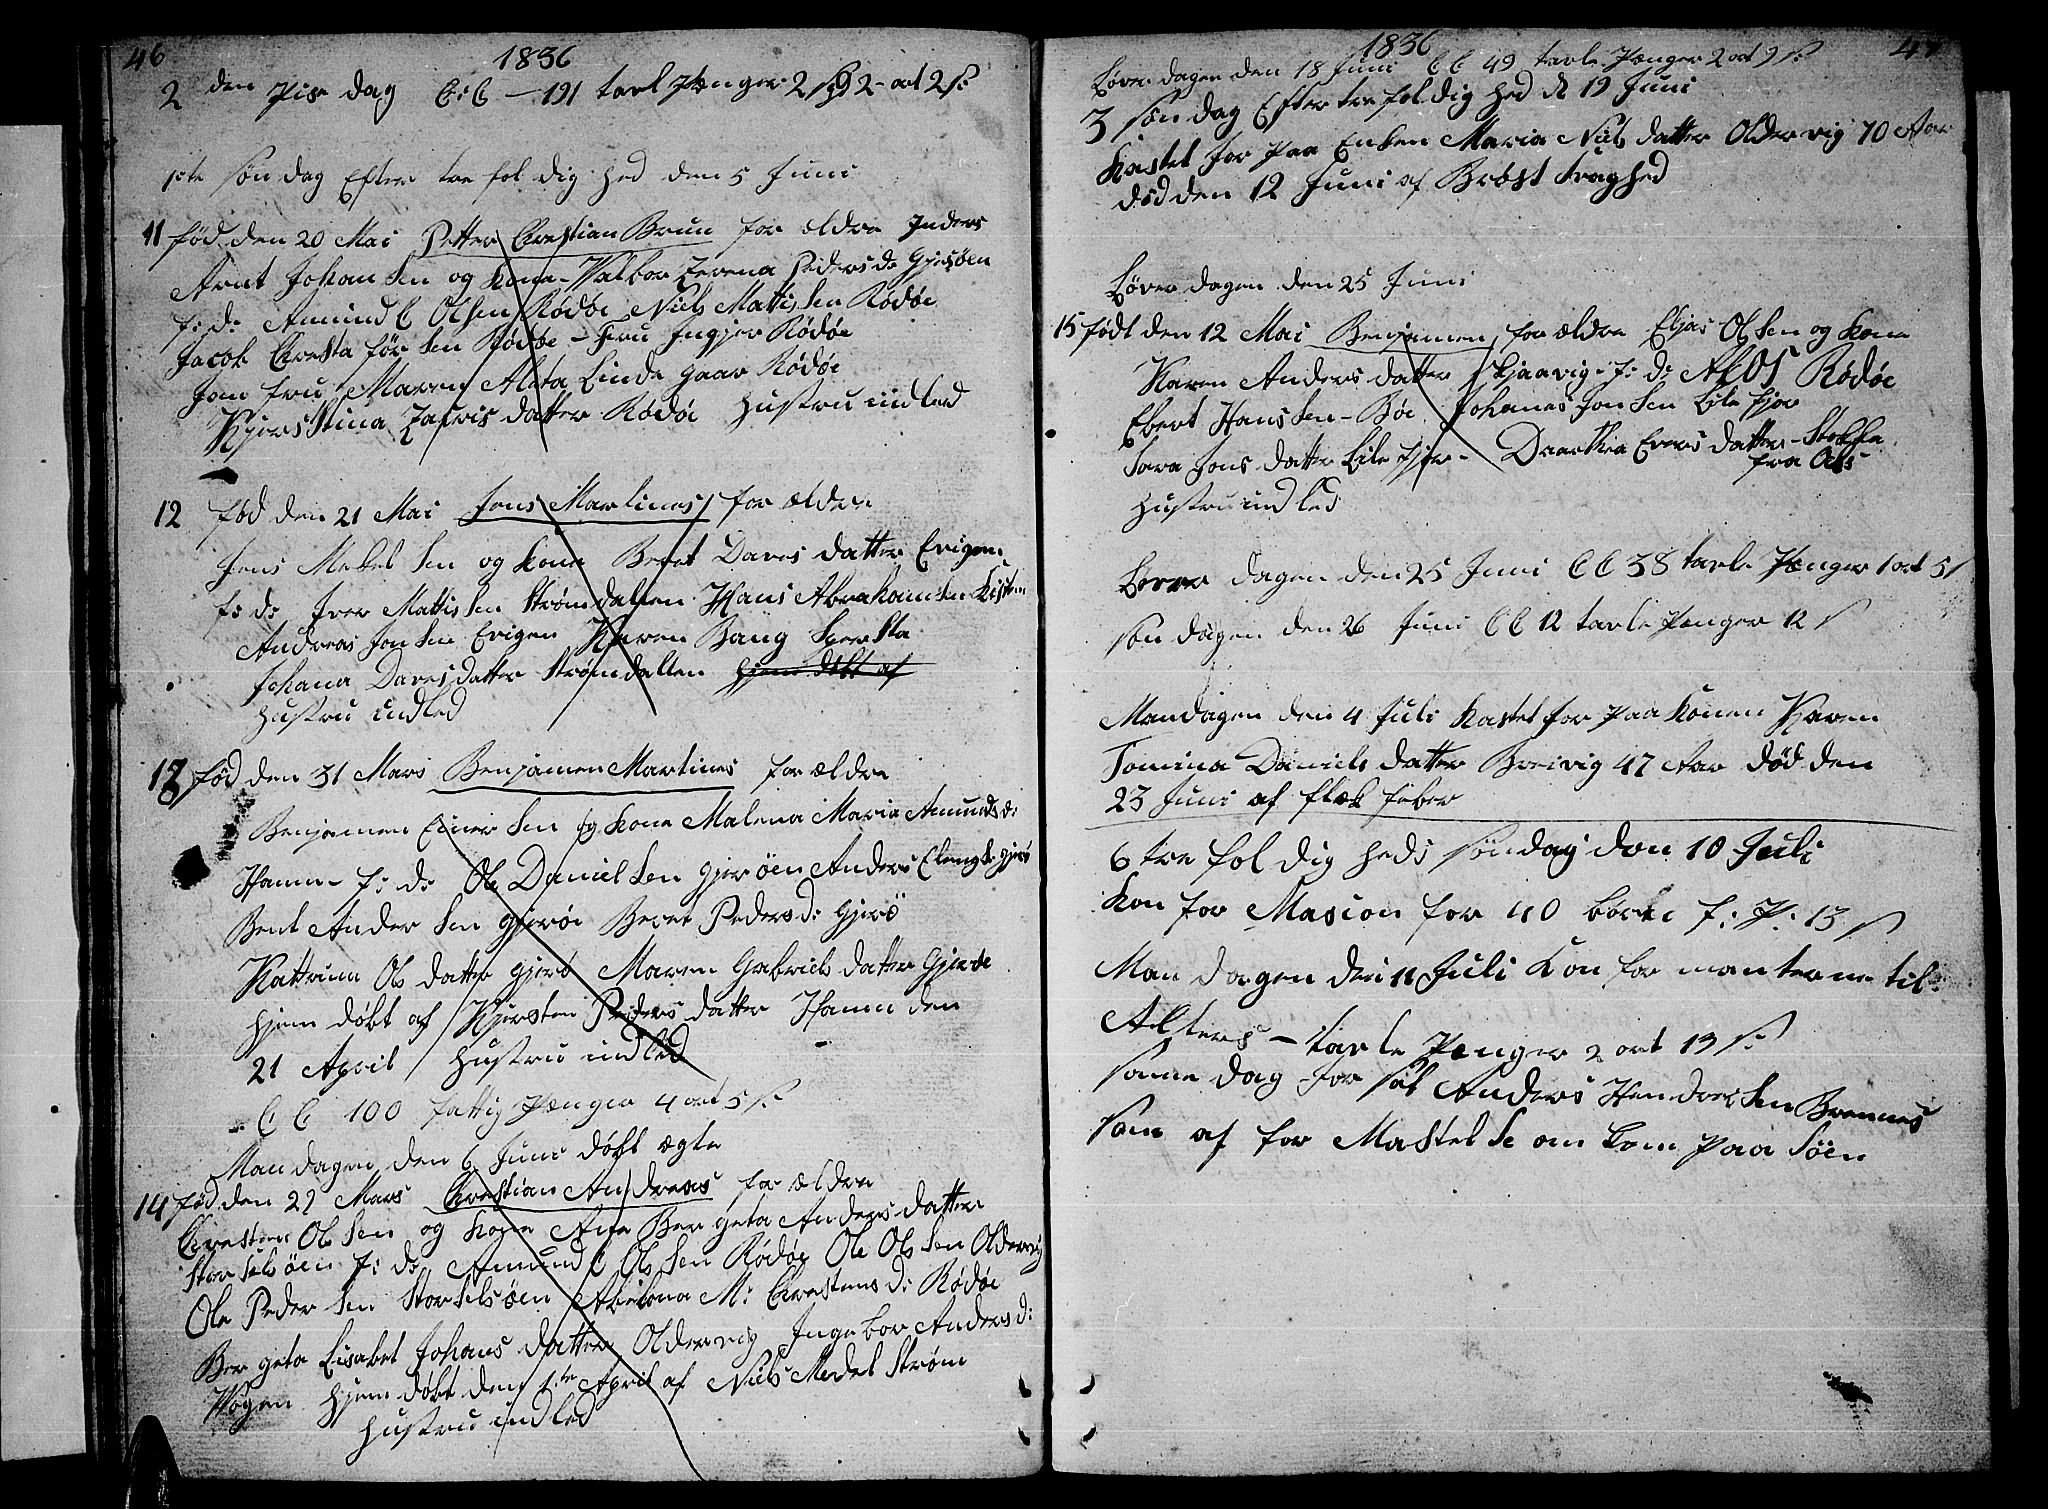 46
1836
2 den Pise dag C:C – 191 tavl Pænger 2 2 – ort 2 s
1ste søn dag Efter tre fol dig hed den 5 Juni
11 fød den 20 Mai Petter Chrestian Brun for ældre
Arnt Johan Sen og kone Valbor Zerena Pedersd: Gjesøen
f: d: Amund C Olsen Rødøe Niels Mattis Sen Rødøe
Jacob Chresta før Sen Rødøe – Fru Ingjer Rødøe
Jom fru Maren Aleta Linde gaar Rødøe
Kjers Stina Zakris datter Rødøe hustru ind led
12 fød den 21 Mai Jens Martines for ældre
Jens Mekel Sen og kone Beret Dares datter Evigen
f: d: Iver Mattis Sen Strømdallen Hans Abraham Sen
Andreas Jon Sen Evigen Karen Bang
Johana Dares datter Strømdallen hjem døbt af
hustru ind led
13 fød den 31 Mars Benjamen Martines for ældre
Benjamen Einer Sen og kone Malena Maria Amunds d:
Hamn – f: d: Ole Daniel Sen gjerøen Anders
Bent Ander Sen gjerøe Beret Peders d: gjerø
Kattrina Ols datter gjerø Maren Gabriels datter Gjerøe
hjem døbt af Kjersten Peders datter Hamn den
21 April hustru ind led
C C 100 fattig Pænger 4 ort 5 s
Man dagen den 6 Juni døbt ægte
14 fød den 22 Mars Chrestian Andreas for ældre
Chresten Ol Sen og kone Ane Ber geta Anders datter
Stor Selsøen f: d: Amund C Ol Sen Rødøe Ole Ol Sen Oldervig
Ole Peder Sen Stor Selsøen Abelona M: Chrestens d: Rødøe
Ber geta Lisabet Johans datter Oldervig Inge bor Anders d:
Vogen hjem døbt den 1te April af Niels Medel Strøm
hustru ind led
1836
47
Løver dagen den 18 Juni C C 49 tavle Pænger 2 ort 9 s
3 søn dag Efter tre fol dig hed d 19 Juni
Kastet Jor Paa Enken Maria Niels datter Oldervig 70 Aar
død den 12 Juni af Brøst svaghed
Løver dagen den 25 Juni
15 født den 12 Mai Benjamen for ældre Eljas Ol Sen og kone
Karen Anders datter Skjaavig f: d: Rødøe
Ebert Hans Sen – Bøe Johanes Jon Sen Lile Fjor
Sara Jons datter Lile Fjor – Daarthea Evers datter
hustru ind led
Løver dagen den 25 Juni C C 38 tavle Pænger 1 ort 5 s
søn dagen den 26 Juni C C 12 tavle Pænger 12 s
Mandagen den 4 Juli Kastet for Paa Konen Karen
Tomina Daniels datter Breivig 47 Aar død den
23 Juni af flæk feber
6 tre fol dig heds søndag den 10 Juli
Kon for Masion for 40 børn f: P: 13 s
Man dagen den 11 Juli Kon for man terne til
Alters – tavle Pænger 2 ort 13 s
same dag for Anders Hendrek Sen Brennes
som af for Mastel Se om kom Paa Søen